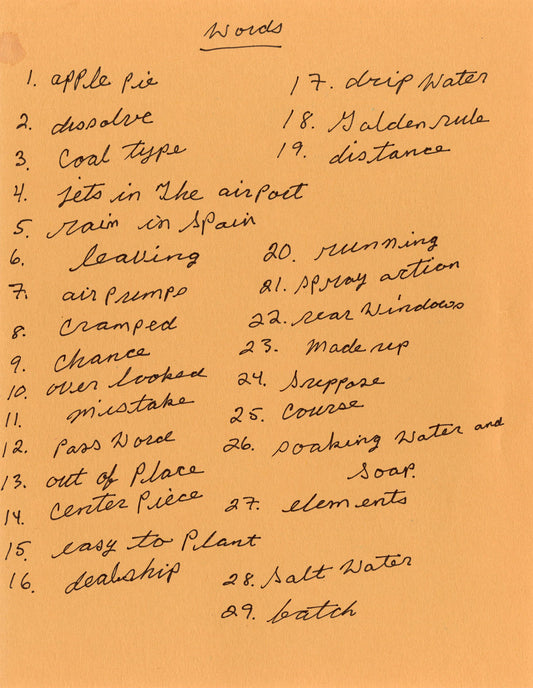 Words
1. apple pie
2. dissolve
3. Coal type
4. Jets in The airport
5. rain in Spain
6. leaving
7. air pumps
8. Cramped
9. Chance
10. over looked
11. mistake
12. Pass Word
13. out of Place
14. Center Piece
15. easy to Plant
16. dealship
17. drip Water
18. Golden rule
19. distance
20. running
21. spray action
22. rear Windows
23. Made up
24. Suppose
25. Course
26. soaking Water and
Soap.
27. elements
28. Salt Water
29. batch